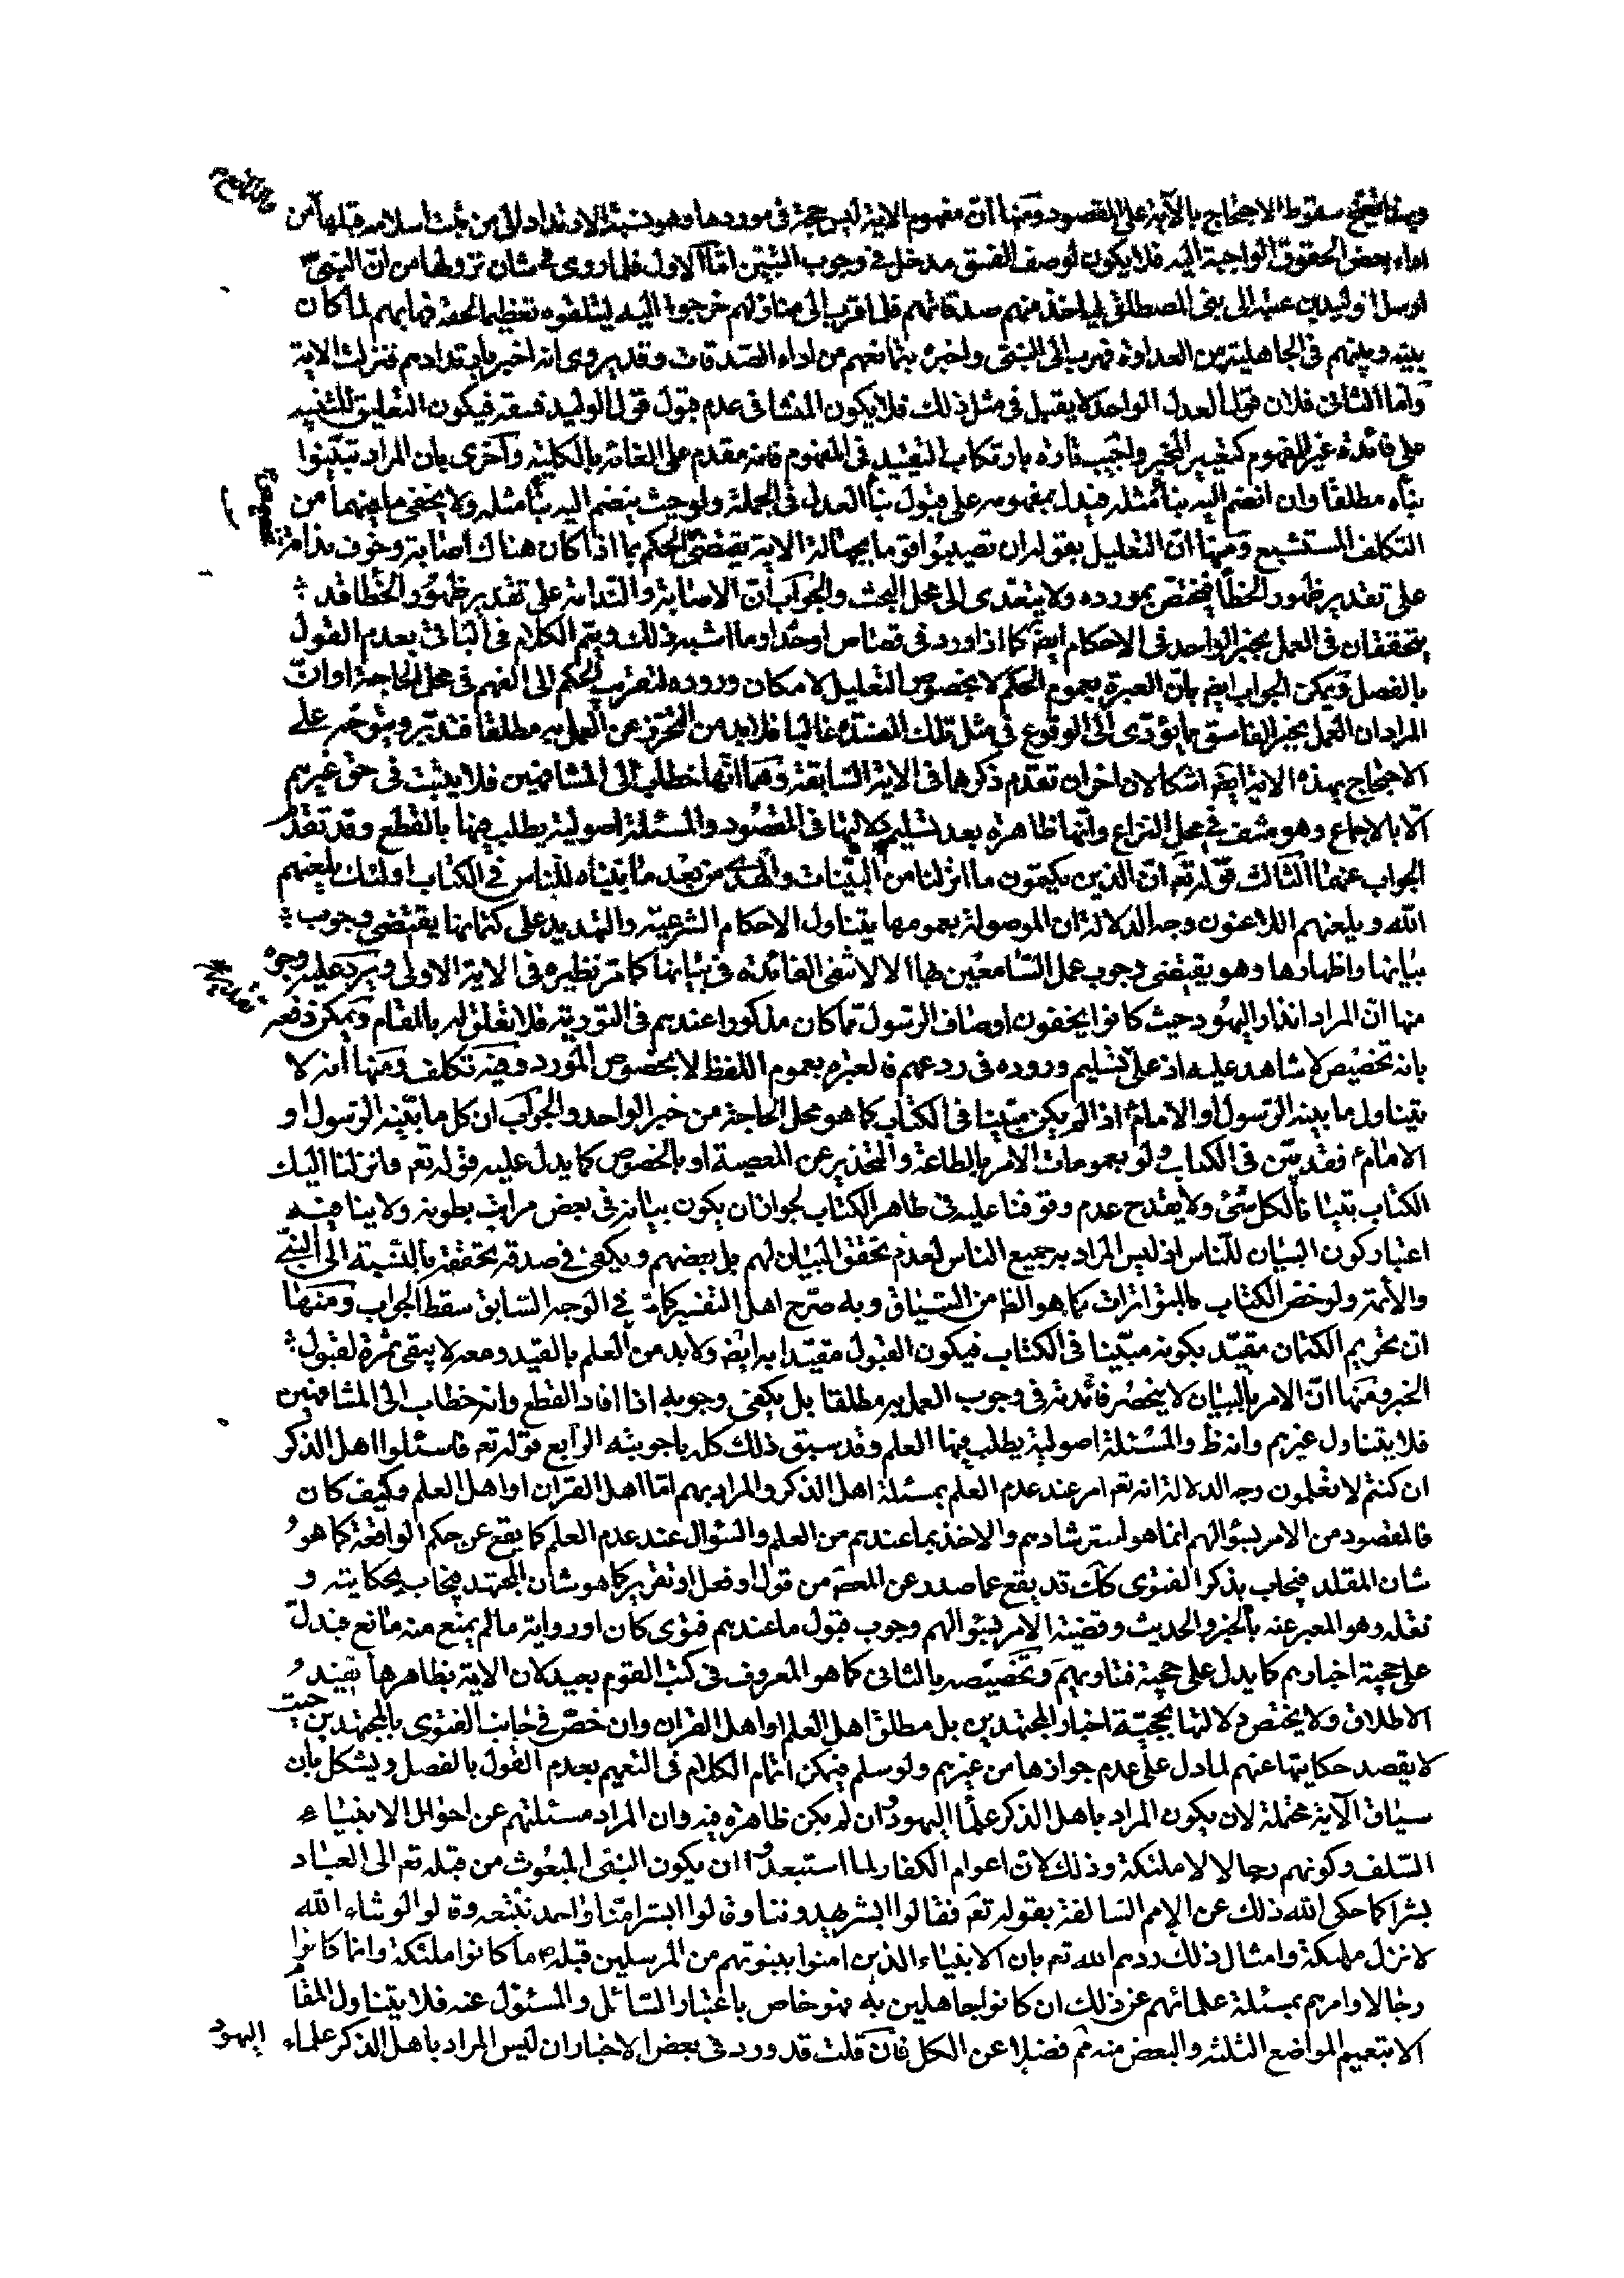 وبهذا يتضح سقوط الاحتجاج بالآية على المقصود ومنها ان مفهوم الاية ليس حجة في موردها وهو نسبة الارتداد الى من ثبت اسلامه قبلها من
اداء بعض الحقوق الواجبة اليه فلا يكون لوصف الفسق مدخل في وجوب التبين اما الاول فلما روى في شان نزولها من ان النبي ص
ارسل وليد بن عقبة الى بنى المصطلق لياخذ منهم صدقاتهم فلما قرب الى منازلهم خرجوا اليه ليتلقوه تعظيما لحقه فهابهم لما كان
بينه وبينهم في الجاهلية من العداوة فهرب الى النبي واخبره بتمانعهم من اداء الصدقات وقد يروى انه اخبر بارتدادهم فنزلت الاية
واما الثاني فلان قول العدل الواحد لا يقبل في مثل ذلك فلا يكون المنشا في عدم قبول قول الوليد فسقه فيكون التعليق للتنبيه
على فائدة غير المفهوم كتعيير المخبر واجيب تارة بارتكاب التقييد في المفهوم فانه مقدم على الغائه بالكلية واخرى بان المراد تبينوا
نبأه مطلقا وان انضم اليه نبأ مثله فيدل بمفهومه على قبول نبأ العدل في الجملة ولو حيث ينضم اليه نبأ مثله ولا يخفى ما فيهما من
التكلف المستشبع ومنها ان التعليل بقوله ان تصيبوا قوما بجهالة الاية يقتضى الحكم بما اذا كان هناك اصابة وخوف ندامة
على تقدير ظهور الخطأ فيختص بمورده ولا يتعدى الى محل البحث والجواب ان الاصابة والندامة على تقدير ظهور الخطا قد
يتحققان في العمل بخبر الواحد في الاحكام ايضا كما اذا ورد في قصاص او حد او ما اشبه ذلك ويتم الكلام في الباقي بعدم القول
بالفصل ويمكن الجواب ايضا بان العبرة بعموم الحكم لا بخصوص التعليل لامكان وروده لتقريب الحكم الى الفهم في محل الحاجة او ان
المراد ان العمل بخبر الفاسق ما يؤدى الى الوقوع في مثل تلك المفسدة غالبا فلا بد من التحرز عن العمل به مطلقا فتدبر ويتوجه على
الاحتجاج بهذه الاية ايضا اشكالان اخران تقدم ذكرهما في الاية السابقة وهما انها خطاب الى المشافهين فلا يثبت في حق غيرهم
الا بالاجماع وهو منتف في محل النزاع وانها ظاهرة بعد تسليم دلالتها في المقصود والمسئلة اصولية يطلب فيها بالقطع وقد تقدم
الجواب عنهما الثالث قوله تع ان الذين يكتمون ما انزلنا من البينات والهدى من بعد ما بيناه للناس في الكتاب اولئك يلعنهم
الله ويلعنهم اللاعنون وجه الدلالة ان الموصولة بعمومها يتناول الاحكام الشرعية والتهديد على كتمانها يقتضى وجوب
بيانها واظهارها وهو يقتضى وجوب عمل السامعين بها الا لانتفى الفائدة في بيانها كما مر نظيره في الاية الاولى ويرد عليه وجوه
منها ان المراد انذار اليهود حيث كانوا يخفون اوصاف الرسول مما كان مذكورا عندهم في التورية فلا تعلق له بالمقام ويمكن دفعه
بانه تخصيص لا شاهد عليه اذ على تسليم وروده في ردعهم فالعبرة بعموم اللفظ لا بخصوص المورد وفيه تكلف ومنها انه لا
يتناول ما بينه الرسول او الامام اذ لم يكن مبينا في الكتاب كما هو محل الحاجة من خبر الواحد والجواب ان كل ما بينه الرسول او
الامام فقد بين في الكتاب ولو بعمومات الامر بالطاعة والتحذير عن المعصية او بالخصوص كما يدل عليه قوله تع وانزلنا اليك
الكتاب تبيانا لكل شئ ولا يقدح عدم وقوفنا عليه في ظاهر الكتاب لجواز ان يكون بيانه في بعض مراتب بطونه ولا ينافيه
اعتبار كون البيان للناس اذ ليس المراد به جميع الناس لعدم تحقق البيان لهم بل بعضهم ويكفى في صدقه تحققه بالنسبة الى النبي
والائمة ولو خص الكتاب بالمتواترات كما هو الظ من السياق وبه صرح اهل التفسير كان في الوجه السابق سقط الجواب ومنها
ان تحريم الكتمان مقيد بكونه مبينا في الكتاب فيكون القبول مقيدا به ايضا ولا بد من العلم بالقيد ومعه لا يبقى ثمرة لقبول
الخبر ومنها ان الامر بالبيان لا ينحصر فائدته في وجوب العمل به مطلقا بل يكفى وجوبه اذا افاد القطع وانه خطاب الى المشافهين
فلا يتناول غيرهم وانه ظ والمسئلة اصولية يطلب فيها العلم وقد سبق ذلك كله باجوبته الرابع قوله تع فاسئلوا اهل الذكر
ان كنتم لا تعلمون وجه الدلالة انه تع امر عند عدم العلم بمسئلة اهل الذكر والمراد بهم اما اهل القران او اهل العلم وكيف كان
فالمقصود من الامر بسؤالهم انما هو استرشادهم والاخذ بما عندهم من العلم والسؤال عند عدم العلم كما يقع عن حكم الواقعة كما هو
شان المقلد فيجاب بذكر الفتوى كك قد يقع عما صدر عن المعصوم من قول او فعل او تقرير كما هو شان المجتهد فيجاب بحكايته و
نقله وهو المعبر عنه بالخبر والحديث وقضية الامر بسؤالهم وجوب قبول ما عندهم فتوى كان او رواية ما لم يمنع منه مانع فيدل
على حجية اخبارهم كما يدل على حجية فتاويهم وتخصيصه بالثاني كما هو المعروف في كتب القوم بعيد لان الاية بظاهرها تفيد
الاطلاق ولا يختص دلالتها بحجية اخبار المجتهدين بل مطلق اهل العلم او اهل القران وان خص في جانب الفتوى بالمجتهدين حيث
لا يقصد حكايتها عنهم لما دل على عدم جوازها من غيرهم ولو سلم فيمكن اتمام الكلام في التعميم بعدم القول بالفصل ويشكل بان
سياق الآية محتملة لان يكون المراد باهل الذكر علماء اليهود ان لم يكن ظاهرة فيه وان المراد مسئلتهم عن احوال الانبياء
السلف وكونهم رجالا لا ملئكة وذلك لان اعوام الكفار لما استبعدوا ان يكون النبي المبعوث من قبله تع الى العباد
بشرا كما حكى الله ذلك عن الامم السالفة بقوله تع فقالوا ابشر يهدوننا وقالوا ابشرا منا واحد نتبعه وقالوا لو شاء الله
لانزل ملئكة وامثال ذلك ردهم الله تع بان الانبياء الذين امنوا بنبوتهم من المرسلين قبله ص ما كانوا ملئكة وانما كانوا
رجالا وامرهم بمسئلة علمائهم عن ذلك ان كانوا جاهلين به فهو خاص باعتبار السائل والمسئول عنه فلا يتناول المقام
الا بتعميم المواضع الثلثة والبعض منه ثم فضلا عن الكل فان قلت قد ورد في بعض الاخبار ان ليس المراد باهل الذكر علماء
اليهود